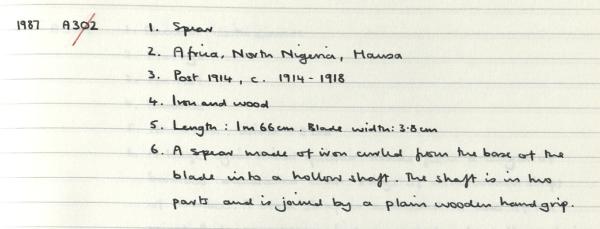 1987 A302 1. Spear
2. Africa, North Nigeria, Hausa
3. Post 1914, c. 1914-1918
4. Iron and wood
5. Length: 1m 66cm. Blade width: 3.8cm
6. A spear made of iron curled from the base of the
blade into a hollow shaft. The shaft is in two
parts and is joined by a plain wooden handgrip.